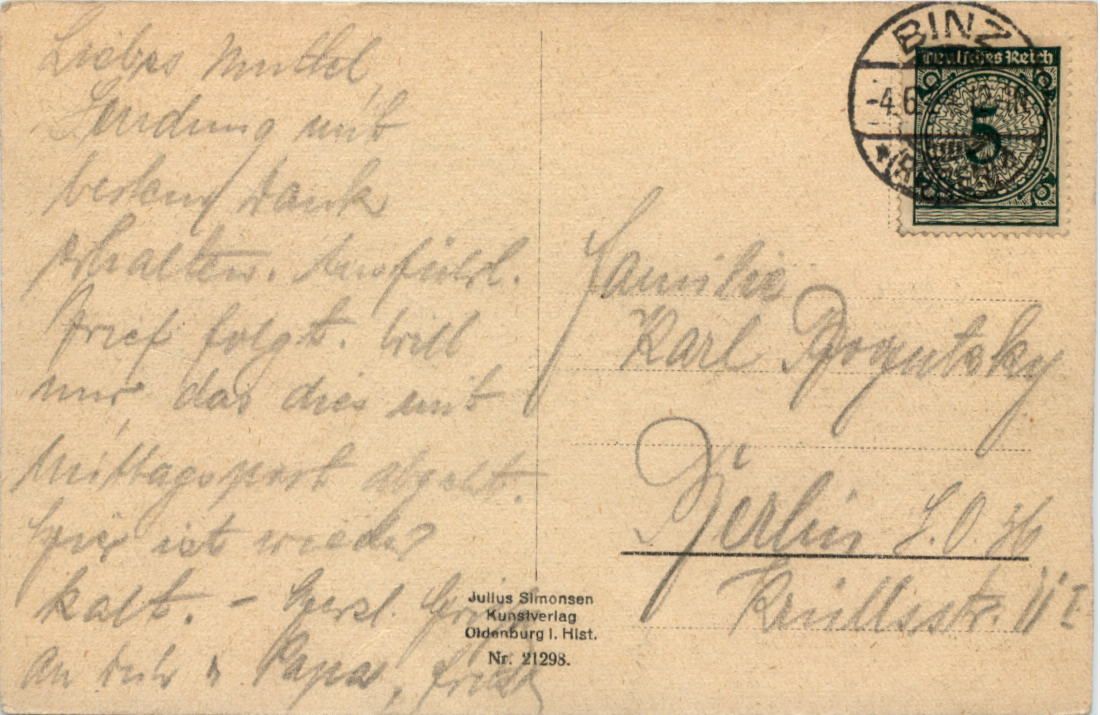 Liebes Muttel,
Sendung mit
bestem Dank
erhalten. Ausführl.
Brief folgt. Will
nur das dies mit
Mittagspost abgeht.
Hier ist wieder
kalt. – Herzl. Grüße
an Dich u Papa,
BINZ
-4.6.
Deutsches Reich
5
Familie
Karl Rogutzky
Berlin S.O. 36
11 I
Julius Simonsen
Kunstverlag
Oldenburg i. Hlst.
Nr. 21298.